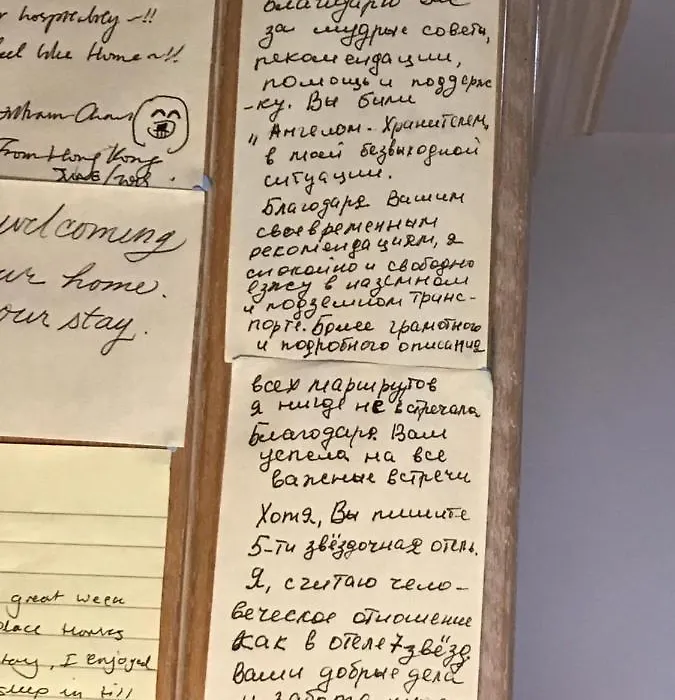 hospitality ~!!
feel like Home ~!!
From Hong Kong
welcoming
our home.
your stay.
great week
place
stay, I enjoyed
благодарю Вас
за мудрые советы,
рекомендации,
помощь и поддерж
-ку. Вы были
„Ангелом-Хранителем,
в моей безвыходной
ситуации.
Благодаря Вашим
своевременным
рекомендациям, я
спокойно и свободно
езжу в наземном
и подземном транс-
порте. Более грамотного
и подробного описания
всех маршрутов
я нигде не встречала
Благодаря Вам
успела на все
важные встречи
Хотя, Вы пишите
5-ти звёздочная отель.
Я, считаю чело-
веческое отношение
как в отеле 7 звёзд.
Ваши добрые дела
и забота